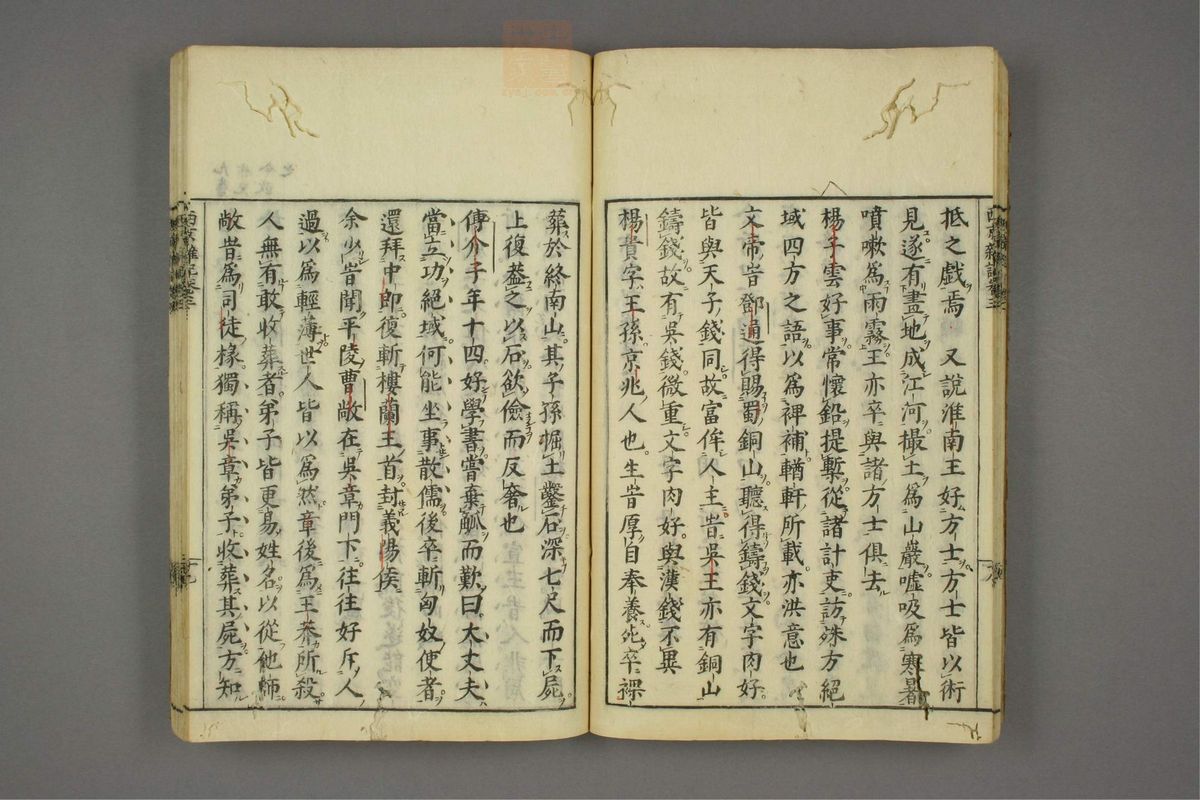 抵之戲焉　又說淮南王好方士方士皆以術
見遂有畫地成江河撮土為山巖噓吸為寒暑
噴嗽為雨霧王亦卒與諸方士俱去
楊子雲好事常懷鉛提槧從諸計吏訪殊方絕
域四方之語以為裨補輶軒所載亦洪意也
文帝旹鄧通得賜蜀銅山聽得鑄錢文字肉好
皆與天子錢同故富侔人主旹吳王亦有銅山
鑄錢故有吳錢微重文字肉好與漢錢不異
楊貴字王孫京兆人也生旹厚自奉養死卒裸
葬於終南山其子孫掘土鑿石深七尺而下屍
上復葢之以石欲儉而反奢也
傅介子年十四好學書嘗棄觚而歎曰大丈夫
當立功絕域何能坐事散儒後卒斬匈奴使者
還拜中郎復斬樓蘭王首封義陽侯
余少旹聞平陵曹敞在吳章門下往往好斥人
過以為輕薄世人皆以為然章後為王莽所殺
人無有敢收葬者弟子皆更易姓名以從他師
敞旹為司徒椽獨稱吳章弟子收葬其屍方知